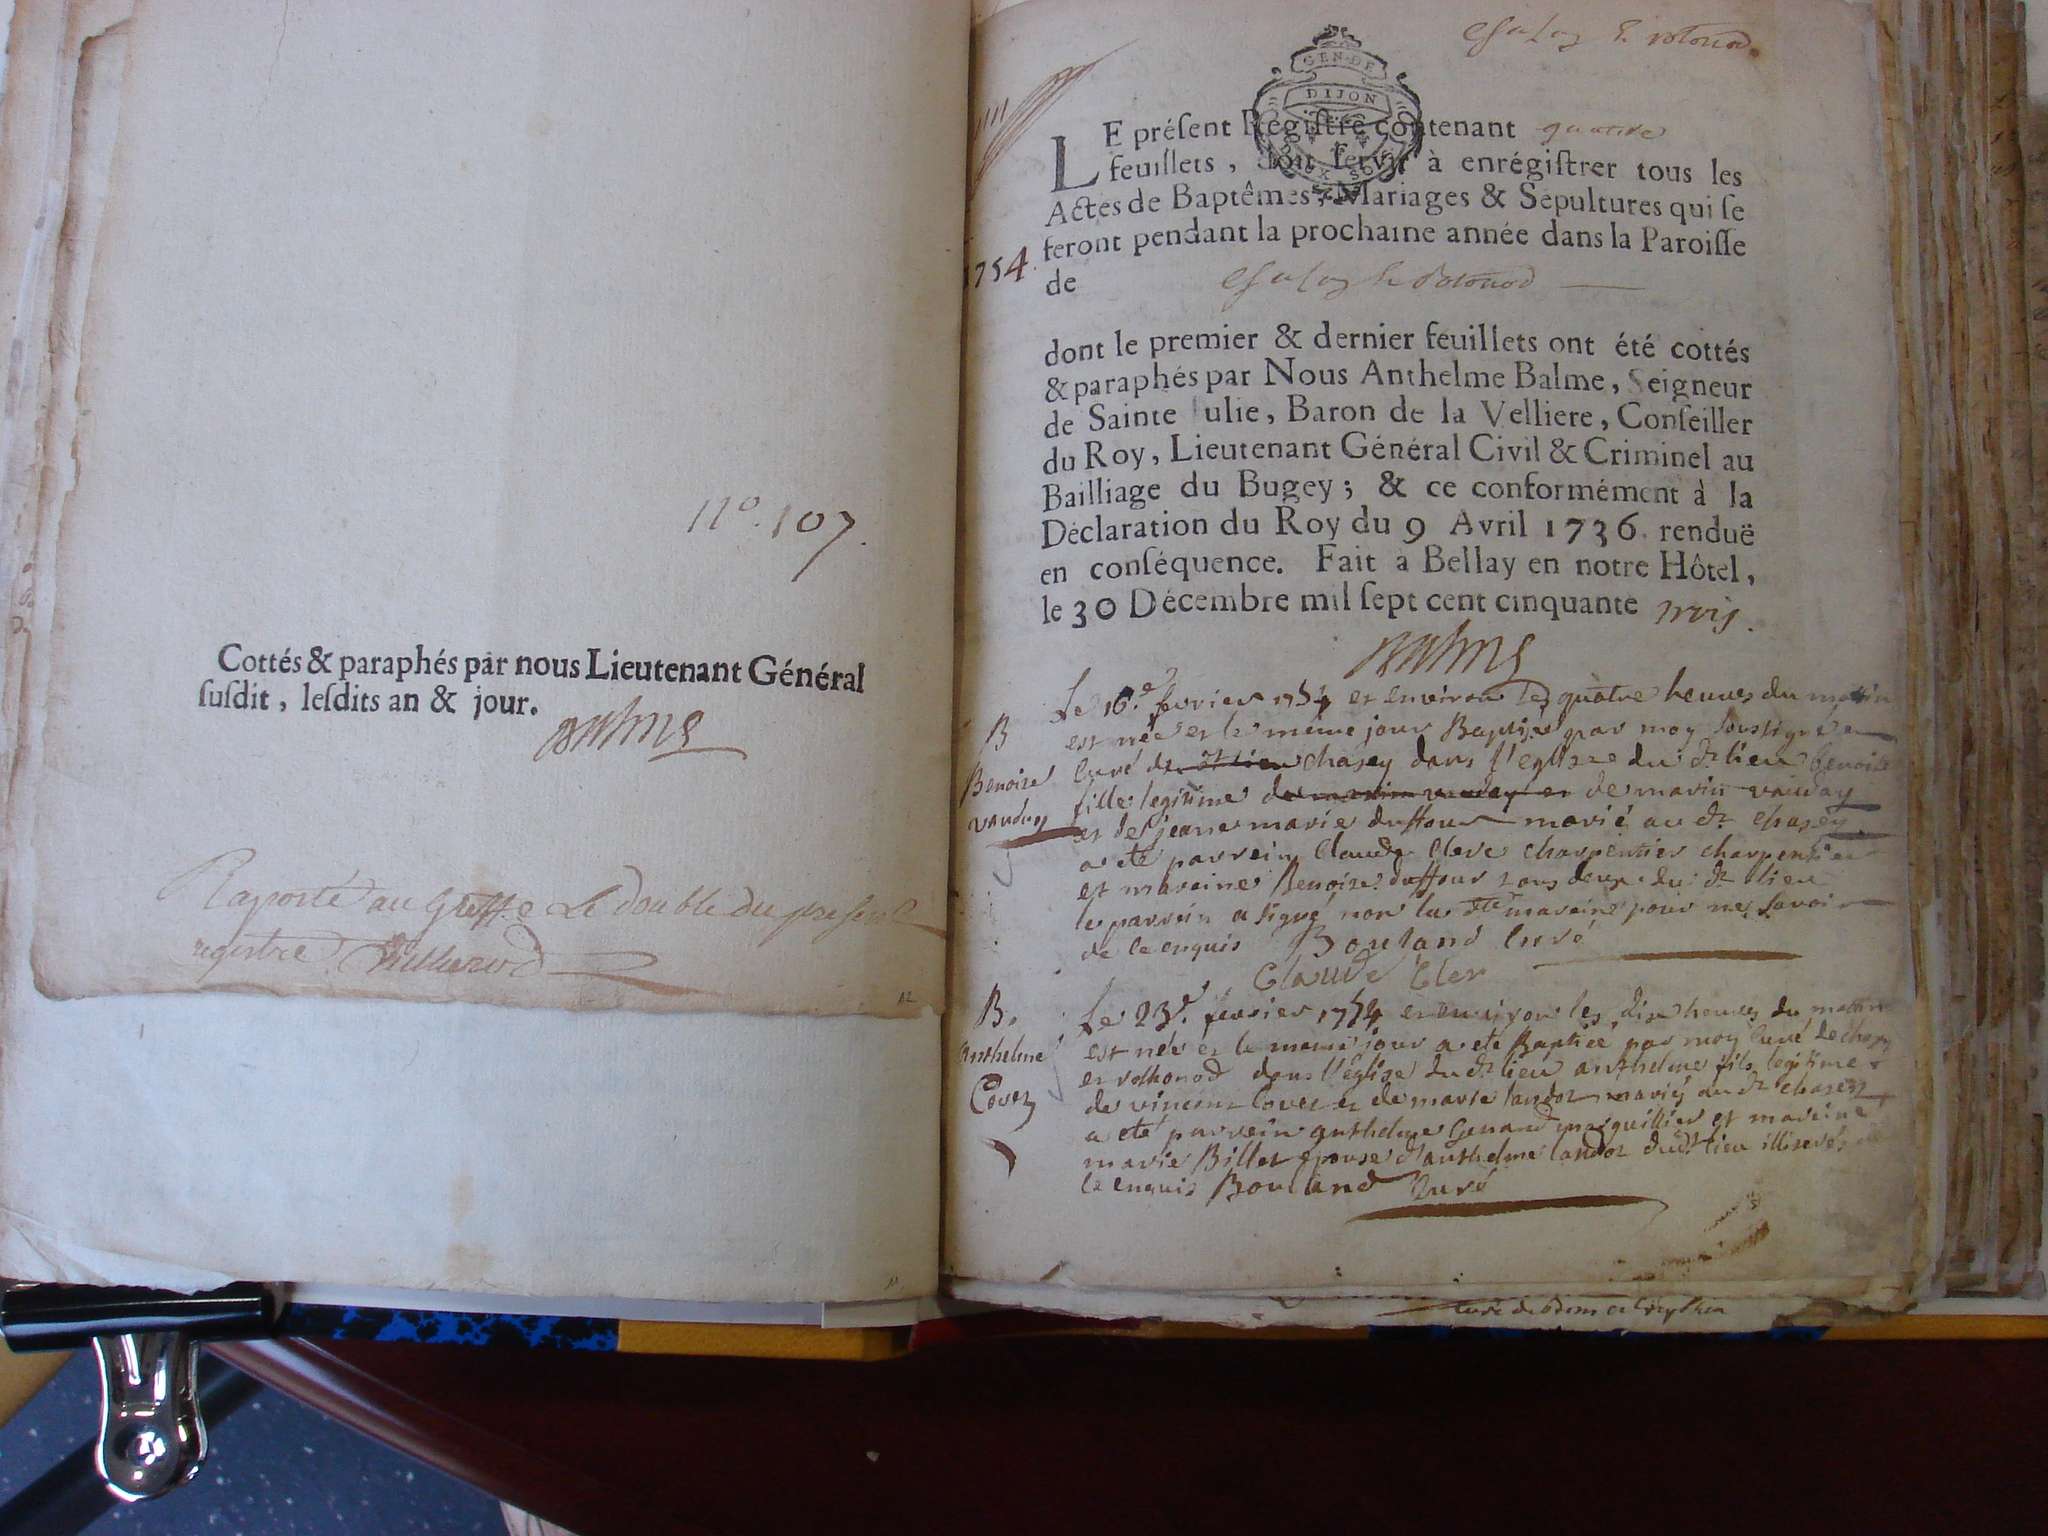 n°. 107.
Cottés & paraphés par nous Lieutenant Général
susdit, lesdits an & jour.
Balme
Raporté au Greffe Le double du present
registre
GEN. DE
DIJON
LE présent Régistre contenant quatre
feuillets, doit servir à enrégistrer tous les
Actes de Baptêmes, Mariages & Sépultures qui se
feront pendant la prochaine année dans la Paroisse
1754
de
dont le premier & dernier feuillets ont été cottés
& paraphés par Nous Anthelme Balme, Seigneur
de Sainte Julie, Baron de la Velliere, Conseiller
du Roy, Lieutenant Général Civil & Criminel au
Bailliage du Bugey; & ce conformément à la
Déclaration du Roy du 9 Avril 1736. renduë
en conséquence. Fait à Bellay en notre Hôtel,
le 30 Décembre mil sept cent cinquante trois.
Balme
B
Benoite
vauday
Le 16.e fevrier 1754 et environ les quatre heures du matin
est née et le même jour Baptisé par moy soussigné
Curé de dt lieu chasey dans l'eglise du dt lieu benoite
fille legitime de marin vauday et de marin vauday
et de jeane marie duffour marié au dt chasey
a eté parrein Claude Clerc charpentier charpentier
et mareine Benoite duffour tous deux du dt lieu
le parrein a signé non la dte mareine pour ne savoir
de ce enquis Bouland Curé
Claude Cler
B.
anthelme
Covet
Le 23e. fevrier 1754 et environ les dix heures du matin
est née et le meme jour a eté Baptisé par moy Curé de chasey
et rothonod dans l'église du dt lieu anthelme fils legitime
de vincent Covet et de marie landoz mariés au dt chasey
a eté parrein anthelme Genand marguillier et mareine
marie Billet epouse d'anthelme landoz du dt lieu illiterés
ce enquis Bouland Curé